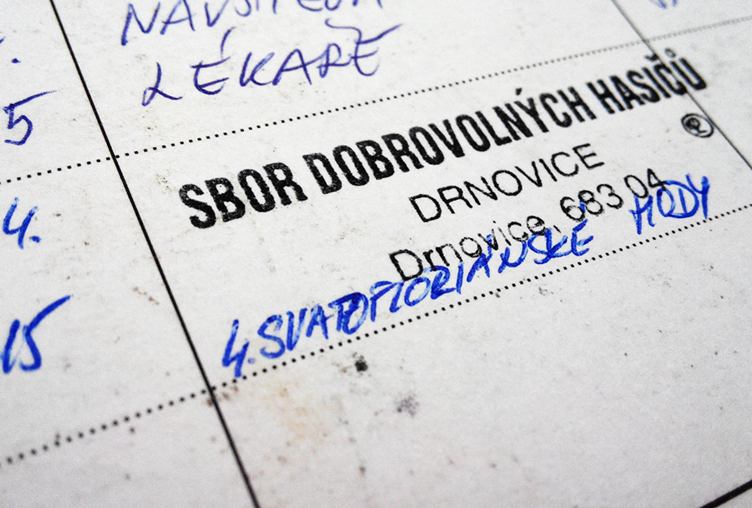 NÁVŠTĚVA
LÉKAŘE
5
SBOR DOBROVOLNÝCH HASIČŮ
®
DRNOVICE
Drnovice 683 04
4.
4. SVATOFLORIÁNSKÉ HODY
15